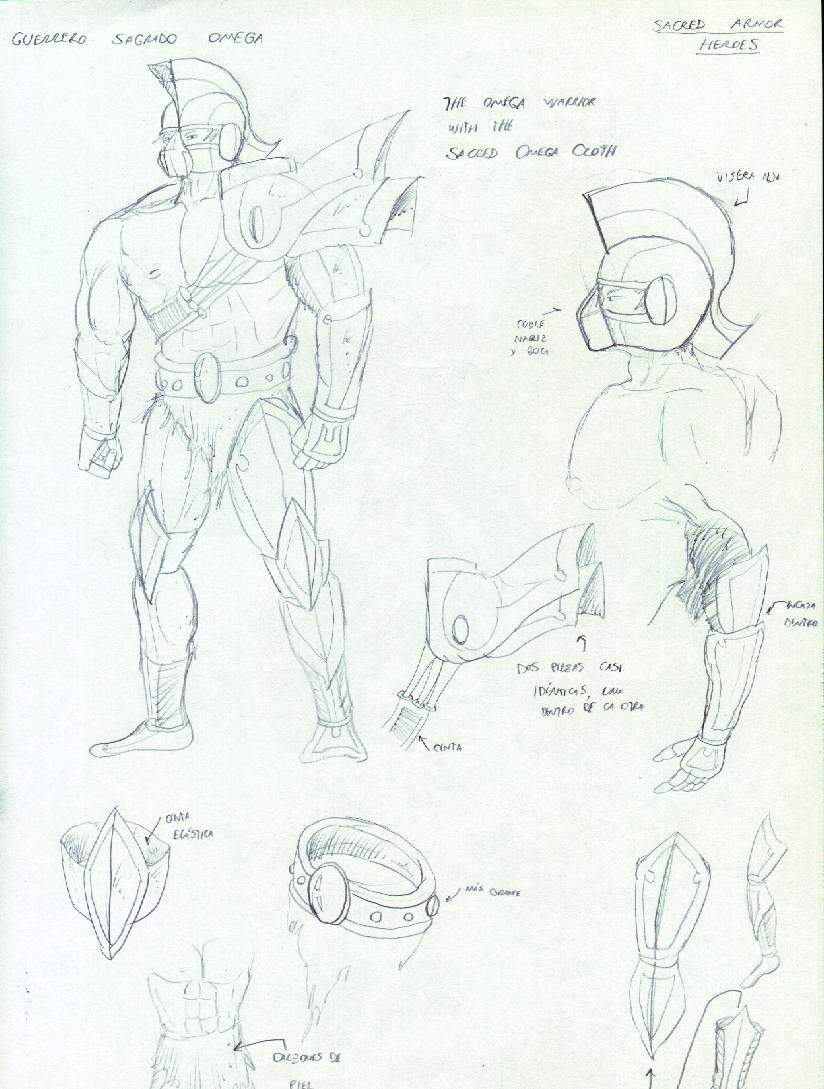 GUERRERO SAGRADO OMEGA
SACRED ARMOR
HEROES
THE OMEGA WARRIOR
WITH THE
SACRED OMEGA CLOTH
VISERA
CUBRE
NARIZ
Y BOCA
ENCAJA
DENTRO
DOS PIEZAS CASI
IDÉNTICAS, UNA
DENTRO DE LA OTRA
CINTA
CINTA
ELÁSTICA
MÁS GRANDE
CALZONES DE
PIEL